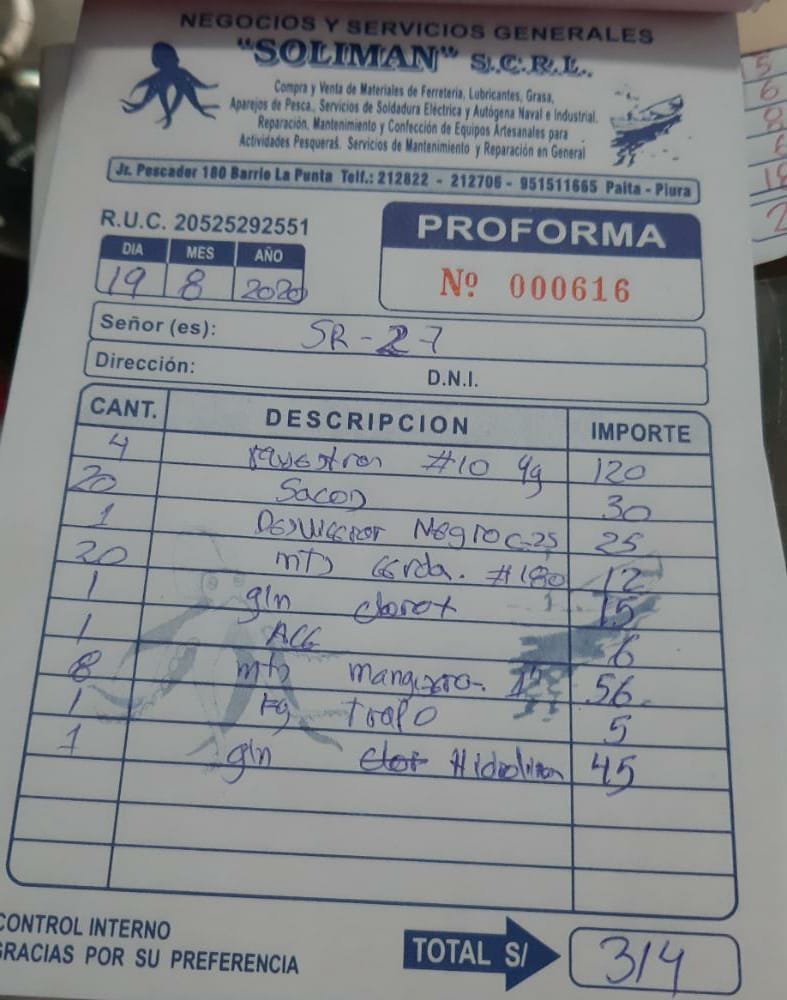 NEGOCIOS Y SERVICIOS GENERALES
"SOLIMAN" S.C.R.L.
Compra y Venta de Materiales de Ferretería, Lubricantes, Grasa,
Aparejos de Pesca, Servicios de Soldadura Eléctrica y Autógena Naval e Industrial.
Reparación, Mantenimiento y Confección de Equipos Artesanales para
Actividades Pesqueras. Servicios de Mantenimiento y Reparación en General
Jr. Pescador 180 Barrio La Punta Telf.: 212822 - 212706 - 951511665 Paita - Piura
R.U.C. 20525292551
PROFORMA
DIA MES AÑO
19 8 2020
Nº 000616
Señor (es): SR-27
Dirección: D.N.I.
CANT. DESCRIPCION IMPORTE
4 #10 120
20 Sacos 30
1 Negro 25
20 mts #180 12
1 gln 15
1 6
8 mts 56
1 kg trapo 5
1 gln 45
CONTROL INTERNO
GRACIAS POR SU PREFERENCIA
TOTAL S/ 314